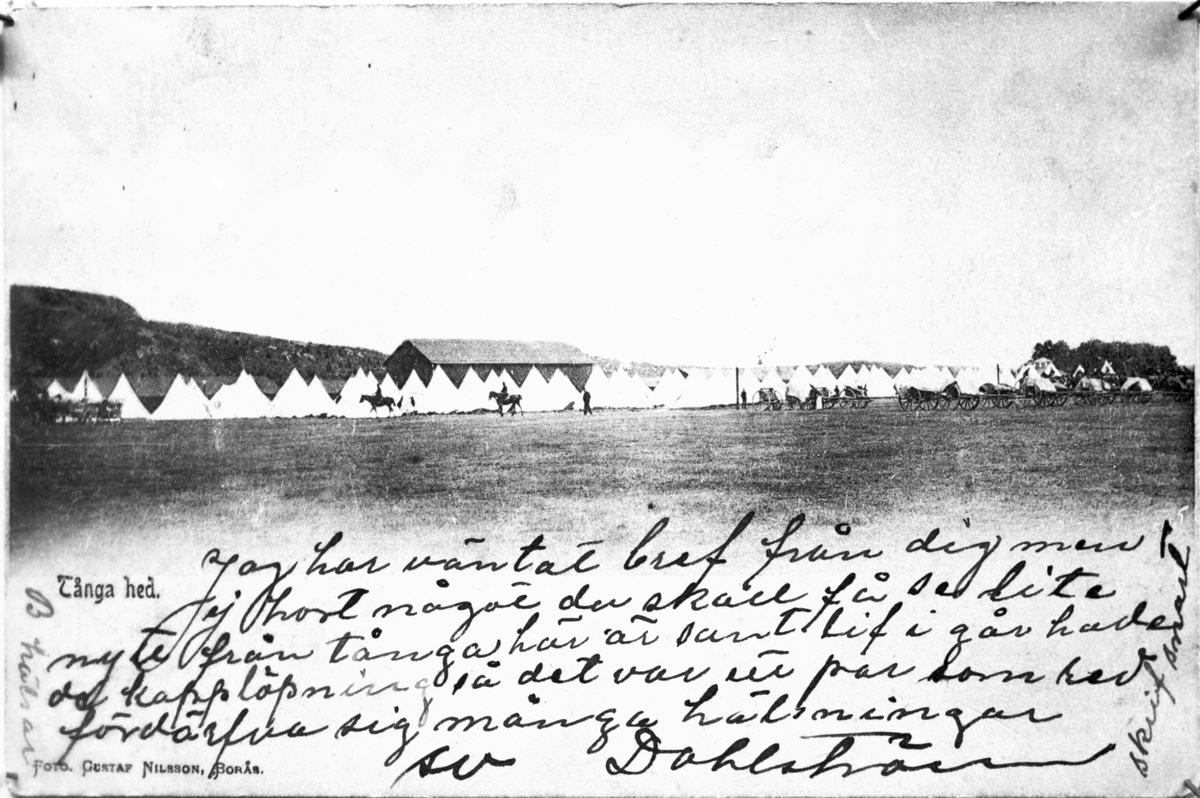 Tånga hed.
Jag har väntat bref från dig men
ej hort något du skall få se lite
nytt från tånga här är sant lif i går hade
de kapplöpning så det var ett par som red
fördärfva sig många hälsningar
sv Dahlström
skrif snart
B hälsar
Foto. Gustaf Nilsson, Borås.